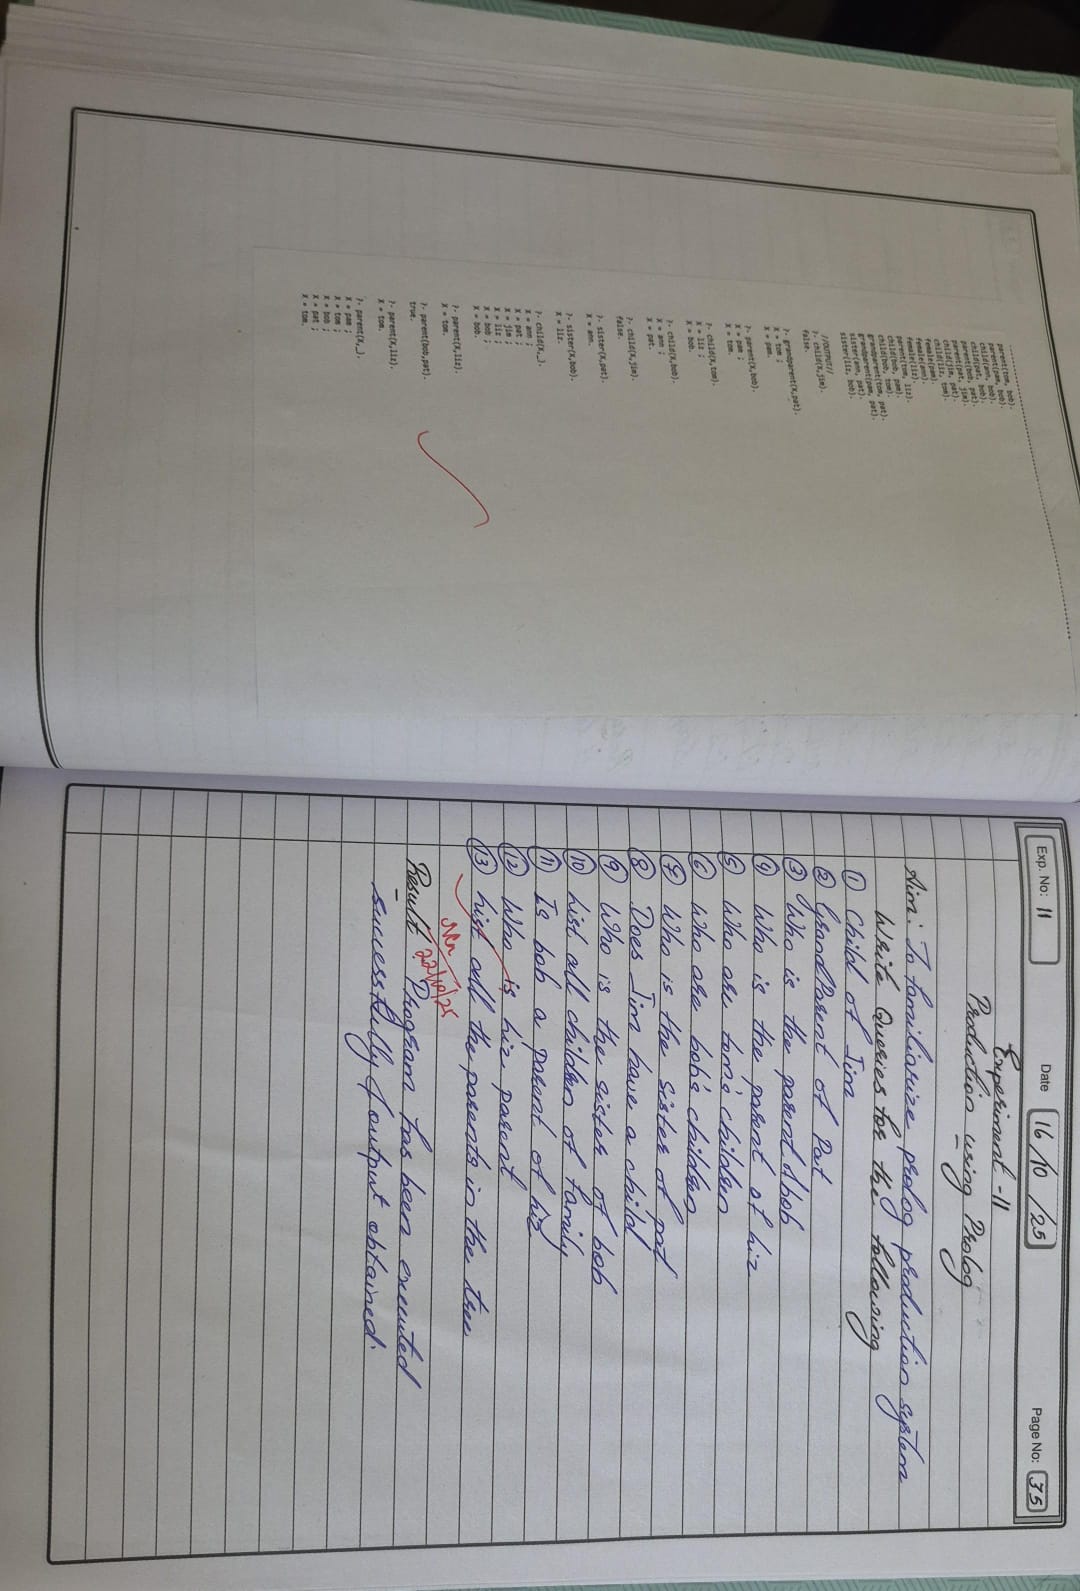 parent(tom, bob).
parent(pam, bob).
child(ann, bob).
child(pat, bob).
parent(bob, pat).
parent(pat, jim).
child(jim, pat).
child(liz, tom).
female(pam).
female(ann).
female(liz).
parent(tom, liz).
child(bob, pam).
child(bob, tom).
grandparent(tom, pat).
grandparent(pam, pat).
sister(ann, pat).
sister(liz, bob).
//OUTPUT//
?- child(X,jim).
false.
?- grandparent(X,pat).
X = tom ;
X = pam.
?- parent(X,bob).
X = pam ;
X = tom.
?- child(X,tom).
X = liz ;
X = bob.
?- child(X,bob).
X = ann ;
X = pat.
?- child(X,jim).
false.
?- sister(X,pat).
X = ann.
?- sister(X,bob).
X = liz.
?- child(X,_).
X = ann ;
X = pat ;
X = jim ;
X = liz ;
X = bob ;
X = bob.
?- parent(X,liz).
X = tom.
?- parent(bob,pat).
true.
?- parent(X,liz).
X = tom.
?- parent(X,_).
X = pam ;
X = tom ;
X = bob ;
X = pat ;
X = tom.
Exp. No: 11 Date 16/10/25 Page No: 35
Experiment - 11
Production using Prolog
Aim: To familiarize prolog production system
Write Queries for the following
① Child of Jim
② GrandParent of Pat
③ Who is the parent of bob
④ Who is the parent of liz
⑤ Who are tom's children
⑥ Who are bob's children
⑦ Who is the sister of pat
⑧ Does Jim have a child
⑨ Who is the sister of bob
⑩ List all children of family
⑪ Is bob a parent of liz
⑫ Who is liz parent
⑬ List all the parents in the tree
22/10/25
Result: Program has been executed
successfully & output obtained.